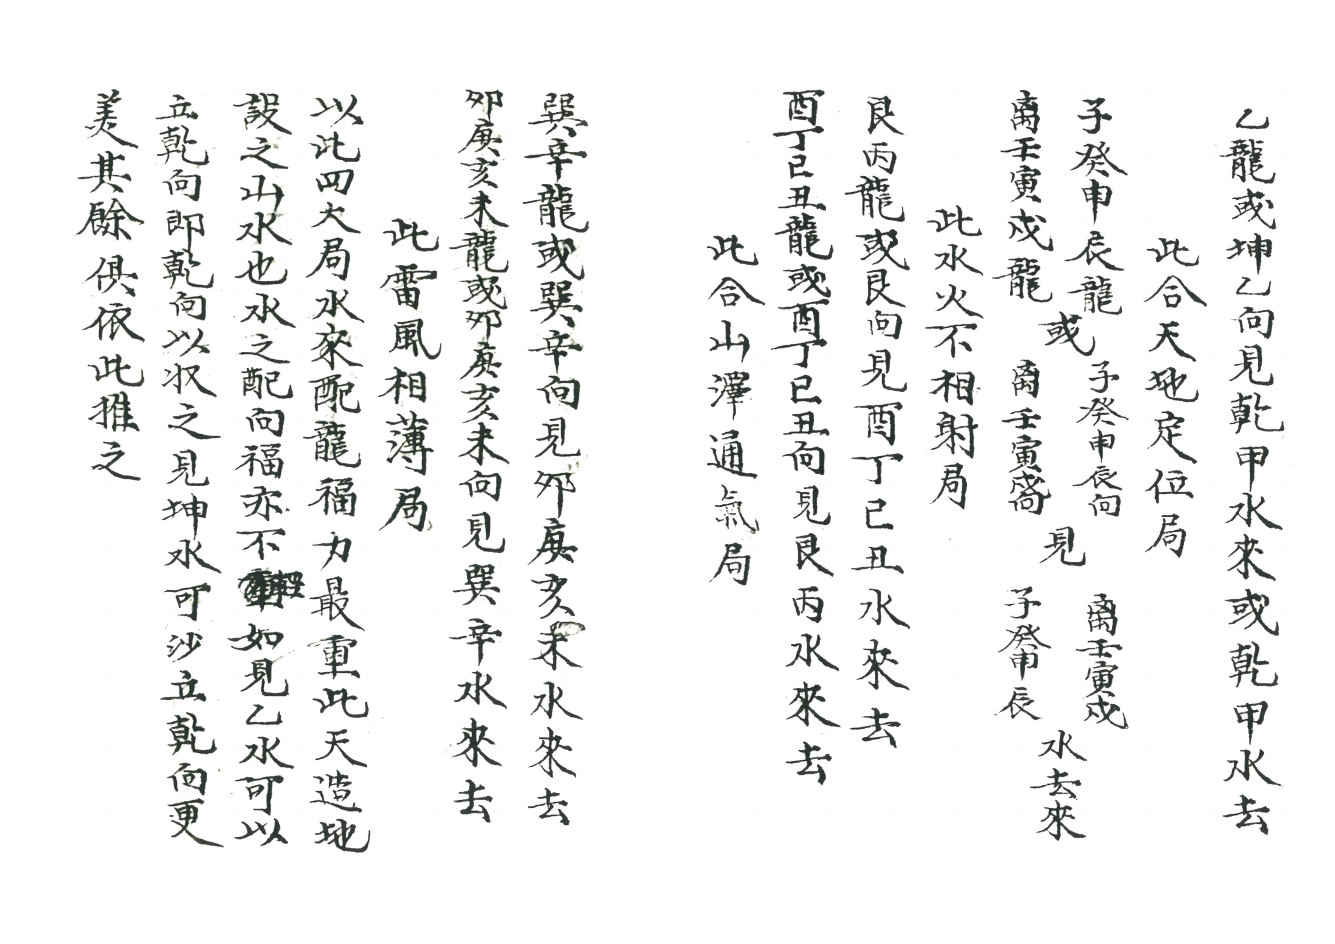 乙龍或坤乙向見乾甲水來或乾甲水去
此合天地定位局
子癸申辰龍
離壬寅戌龍
或
子癸申辰向
離壬寅戌向
見
離壬寅戌
子癸申辰
水去來
此水火不相射局
艮丙龍或艮向見酉丁巳丑水來去
酉丁巳丑龍或酉丁巳丑向見艮丙水來去
此合山澤通氣局
巽辛龍或巽辛向見夘庚亥未水來去
夘庚亥未龍或夘庚亥未向見巽辛水來去
此雷風相薄局
以此四大局水來配龍福力最重此天造地
設之山水也水之配向福亦不輕如見乙水可以
立乾向即乾向以収之見坤水可沙立乾向更
美其餘俱依此推之